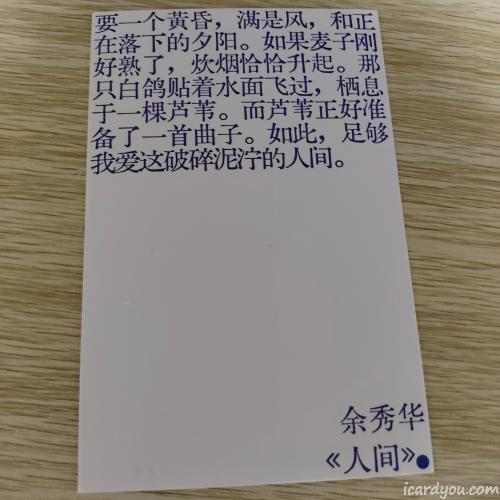 要一个黄昏，满是风，和正
在落下的夕阳。如果麦子刚
好熟了，炊烟恰恰升起。那
只白鸽贴着水面飞过，栖息
于一棵芦苇。而芦苇正好准
备了一首曲子。如此，足够
我爱这破碎泥泞的人间。
余秀华
《人间》
icardyou.com